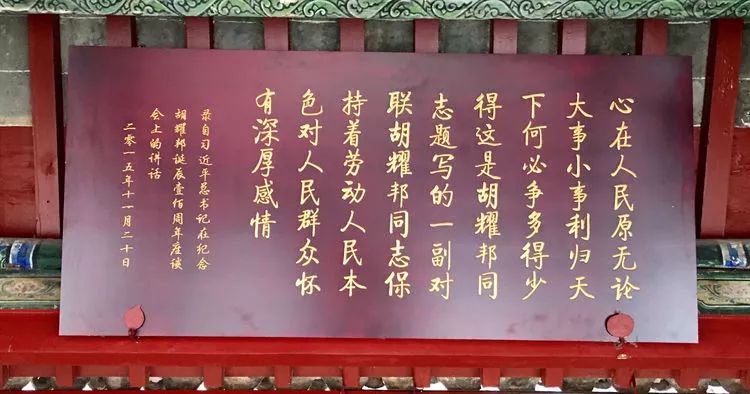 心在人民原无论
大事小事利归天
下何必争多得少
得这是胡耀邦同
志题写的一副对
联胡耀邦同志保
持着劳动人民本
色对人民群众怀
有深厚感情
录自习近平总书记在纪念
胡耀邦诞辰壹佰周年座谈
会上的讲话
二零一五年十一月二十日